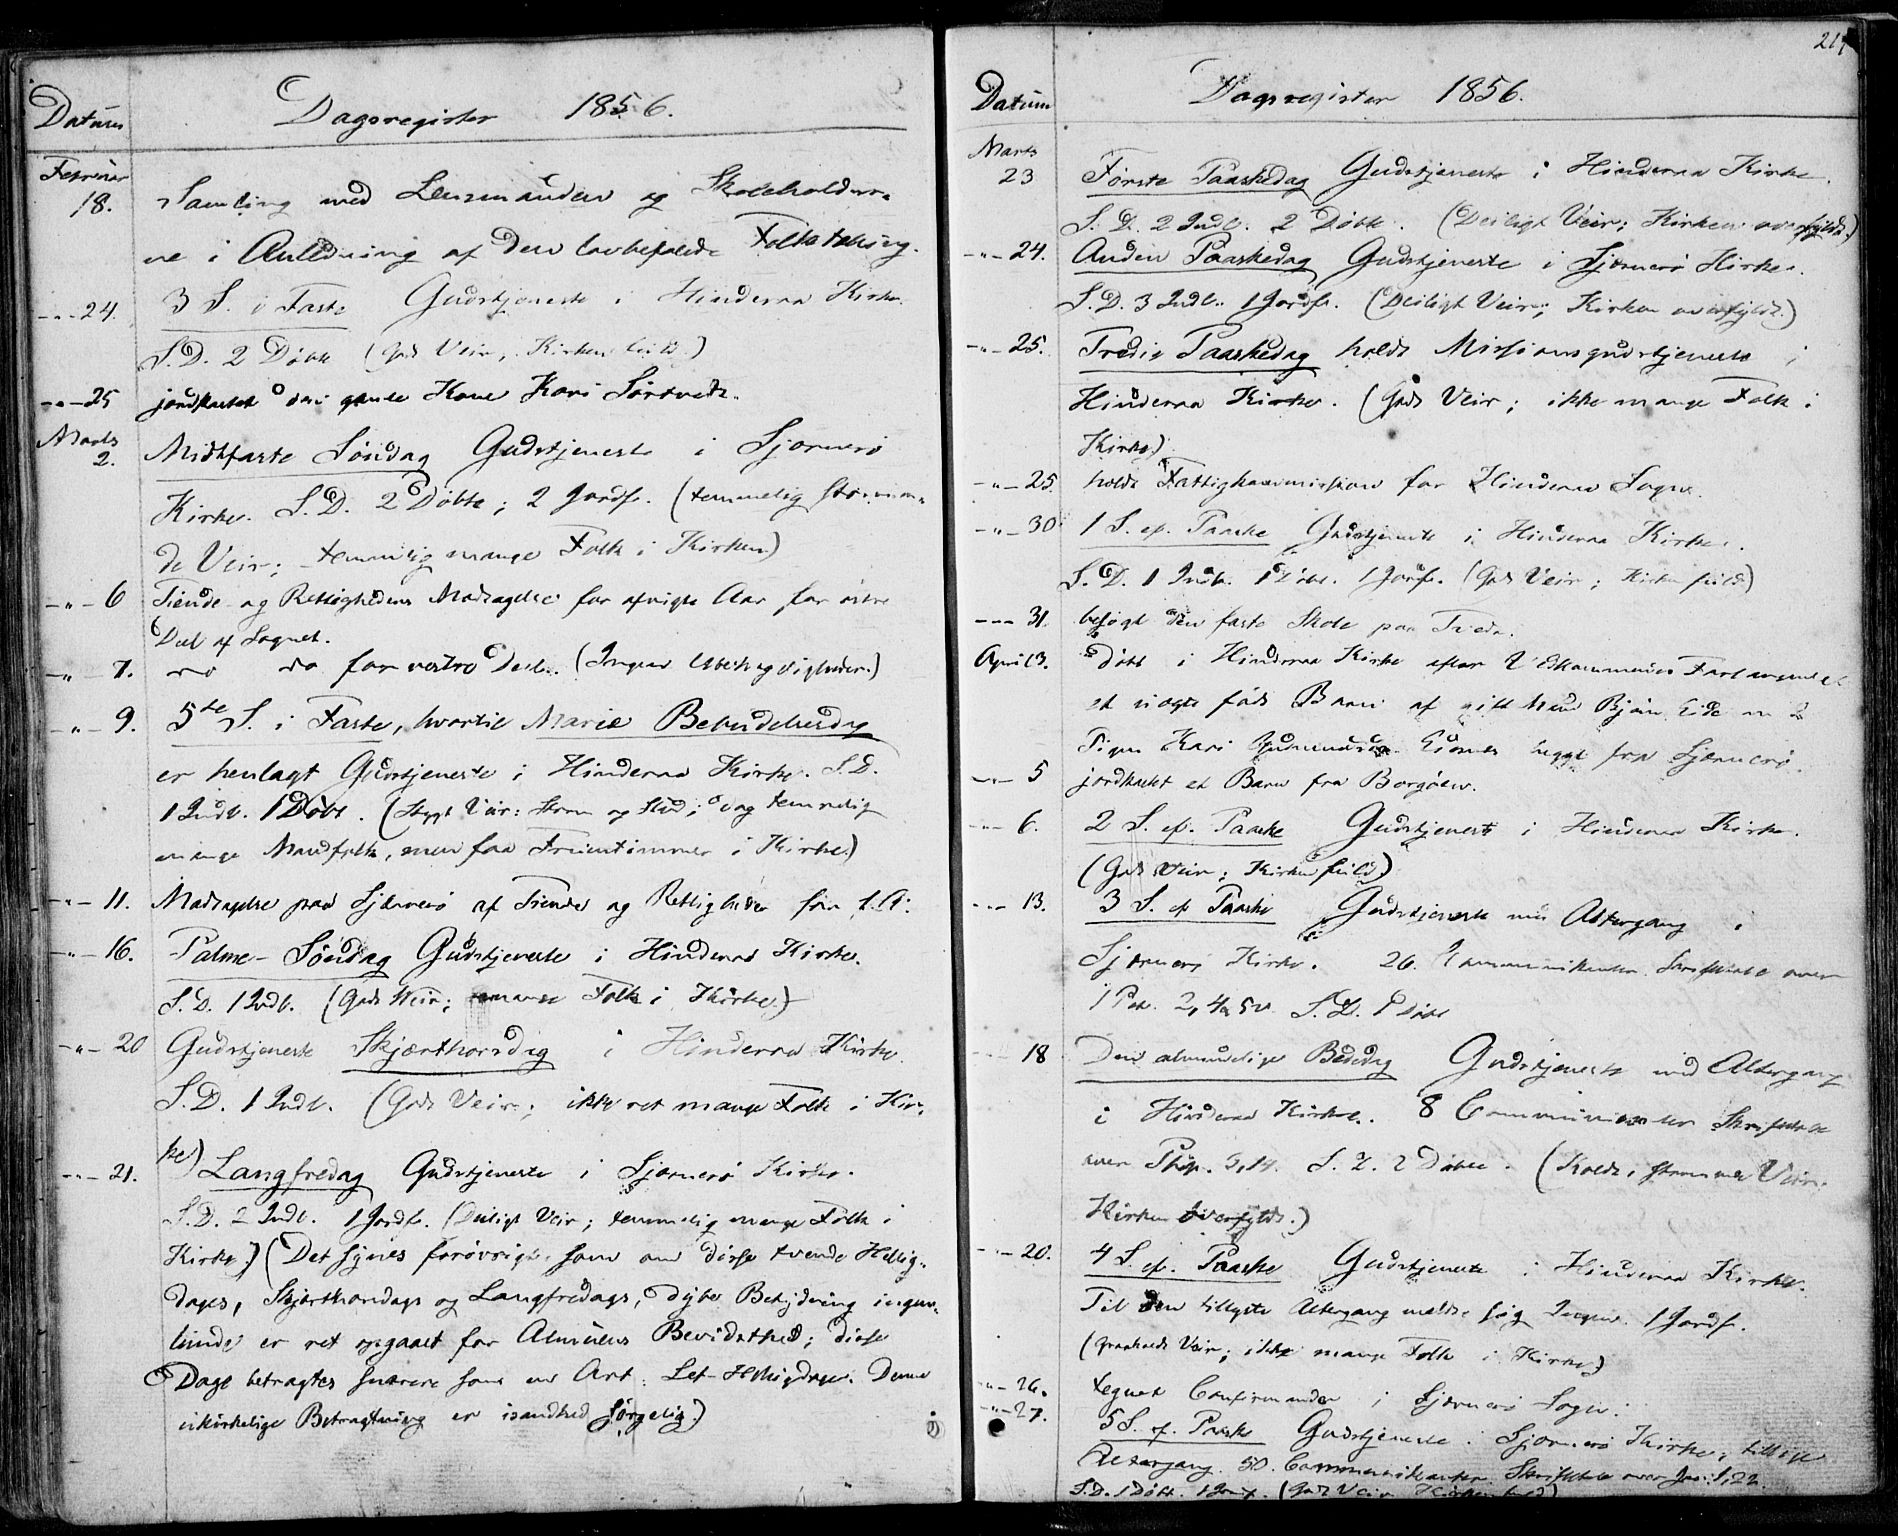 Datum
Dagsregister 1856.
Februar
18. Samling med Lensmanden og Skoleholder-
ne i Anledning af den lovbefalede Folketælling.
-"-24. 3 S. i Faste Gudstjeneste i Hinderaa Kirke.
S.D. 2 Døbte (Godt Veir, Kirken fuld.)
-"-25 jordkastet den gamle Kone Kari Sørtvedt.
Marts
2. Midtfaste Søndag Gudstjeneste i Sjernerø
Kirke. S.D. 2 Døbte; 2 Jordf. (temmelig stormen-
de Veir; temmelig mange Folk i Kirken.)
-"-6 Tiende- og Rettigheders Modtagelse for afvigte Aar for østre
Deel af Sognet.
-"-7. do do for vestre Deel. (Ingen)
-"-9. 5te S. i Faste, hvortil Mariæ Bebudelsesdag
er henlagt Gudstjeneste i Hinderaa Kirke. S.D.
1 Indl. 1 Døbt. (Stygt Veir: Storm og Slud; dog temmelig
mange Mandfolk, men faa Fruentimmer i Kirke.)
-"-11. Modtagelse paa Sjernerø af Tiende og Rettigheder for f. A.
-"-16. Palme-Søndag Gudstjeneste i Hinderaa Kirke.
S.D. 1 Indl. (Godt Veir; mange Folk i Kirke.)
-"-20 Gudstjeneste Skjærthorsdag i Hinderaa Kirke.
S.D. 1 Indl. (Godt Veir; ikke ret mange Folk i Kir-
ke.)
-"-21. Langfredag Gudstjeneste i Sjernerø Kirke.
S.D. 2 Indl. 1 Jordf. (Deiligt Veir; temmelig mange Folk i
Kirke.) (Det synes forøvrigt som om disse tvende Hellig-
dages, Skjærthorsdags og Langfredags, dybe Betydning ingen-
lunde er ret opgaaet for Almuens Bevidsthed; disse
Dage betragtes snarere som en Art Let-Helligdage. Denne
ukirkelige Betragtning er isandhed sørgelig.)
Datum
Dagsregister 1856.
Marts
23 Første Paaskedag Gudstjeneste i Hinderaa Kirke.
S.D. 2 Indl. 2 Døbte. (Deiligt Veir; Kirken overfyldt.)
-"-24. Anden Paaskedag Gudstjeneste i Sjernerø Kirke.
S.D. 3 Indl. 1 Jordf. (Deiligt Veir; Kirken overfyldt.)
-"-25. Tredie Paaskedag holdt Missionsgudstjeneste i
Hinderaa Kirke. (Godt Veir; ikke mange Folk i
Kirke.)
-"-25. holdt Fattigkommission for Hinderaa Sogn.
-"-30 1 S. ef. Paaske Gudstjeneste i Hinderaa Kirke.
S.D. 1 Indl. 1 Døbt. 1 Jordf. (Godt Veir; Kirken fuld)
-"-31. besøgt den faste Skole paa Tvedt.
April 3. Døbt i Hinderaa Kirke efter Vedkommendes Forlangende
et uægte født Barn af gift Mand Bjørn Eide
Pige Kari fra Sjernerø.
-"-5 jordkastet et Barn fra Borgøen.
-"-6. 2 S. ef. Paaske Gudstjeneste i Hinderaa Kirke.
(Godt Veir; Kirken fuld)
-"-13. 3 S. ef. Paaske Gudstjeneste med Altergang i
Sjernerø Kirke. 26 Communikanter. Skriftetale over
1 Pet. 2, 4 a 5 v. S.D. 1 Døbt
18 Den almindelige Bededag Gudstjeneste med Altergang
i Hinderaa Kirke. 8 Communikanter Skriftetale
over 3,14. S.D. 2 Døbte. (Koldt, stormende Veir.
Kirken overfyldt.)
-"-20. 4 S. ef. Paaske Gudstjeneste i Hinderaa Kirke.
Til den tillyste Altergang meldte sig Ingen. 1 Jordf.
( Veir; ikke mange Folk i Kirke)
-"-26. tegnet Confirmander i Sjernerø Sogn.
-"-27. 5 S. ef. Paaske Gudstjeneste i Sjernerø Kirke; tillige
Altergang. 50 Communikanter Skriftetale over Jac. 1,22
S.D. 1 Døbt. 1 Jordf. (Godt Veir Kirken fuld)